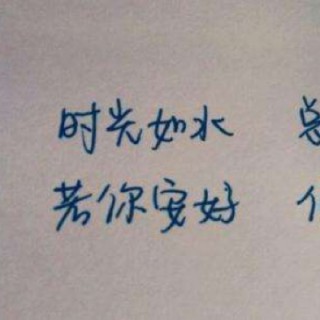 时光如水 总
若你安好